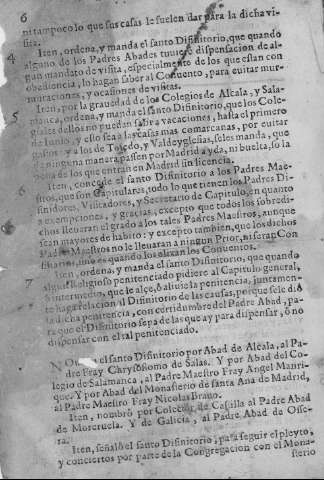 6
ni tampoco lo que sus casas le suelen dar para la dicha vi-
sita.
4 Iten, ordena, y manda el santo Difinitorio, que quando
alguno de los Padres Abades tuuiere dispensacion de al-
gun mandato de visita, especialmente de los que estan con
obediencia, lo hagan saber al Conuento, para euitar mur-
muraciones, y ocasiones de visitas.
5 Iten, por la grauedad de los Colegios de Alcala, y Sala-
manca, ordena, y manda el santo Difinitorio, que los Cole-
giales dellos no puedan salir a vacaciones, hasta el primero
de Iunio, y esso sea a las casas mas comarcanas, por euitar
gastos: y a los de Toledo, y Valdeyglesias, se les manda, que
de ninguna manera passen por Madrid a yda, ni buelta, so la
pena de los que entran en Madrid sin licencia.
6 Iten, concede el santo Difinitorio a los Padres Mae-
stros, que son Capitulares, todo lo que tienen los Padres Di-
finidores, Visitadores, y Secretario de Capitulo, en quanto
a exempciones, y gracias, excepto que todos los sobredi-
chos lleuaran el grado a los tales Padres Maestros, aunque
sean mayores de habito: y excepto tambien, que los dichos
Padres Maestros no le lleuaran a ningun Prior, ni seran Con
siliarios, sino es quando los elixan los Conuentos.
Iten, ordena, y manda el santo Difinitorio, que quando
algun Religioso penitenciado pidiere al Capitulo general,
o intermedio, que le alçe, o aliuie la penitencia, juntamen-
te haga relacion al Difinitorio de las causas, porque se le dio
la dicha penitencia, con certidumbre del Padre Abad, pa-
ra que el Difinitorio sepa de las que ay para dispensar, ò no
dispensar con el tal penitenciado.
el santo Difinitorio por Abad de Alcala, al Pa-
dre Fray Chrysostomo de Salas. Y por Abad del Co-
legio de Salamanca, al Padre Maestro Fray Angel Manri-
que. Y por Abad del Monasterio de santa Ana de Madrid,
al Padre Maestro Fray Nicolas Brauo.
Iten, nombrò por Colector de Castilla al Padre Abad
de Moreruela. Y de Galicia, al Padre Abad de Osse-
ra.
Iten, señalò el santo Difinitorio, para seguir el pleyto,
y conciertos por parte de la Congregacion con el Mona-
sterio